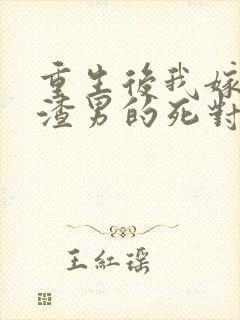 重生後我嫁
渣男的死對
王紅瑶